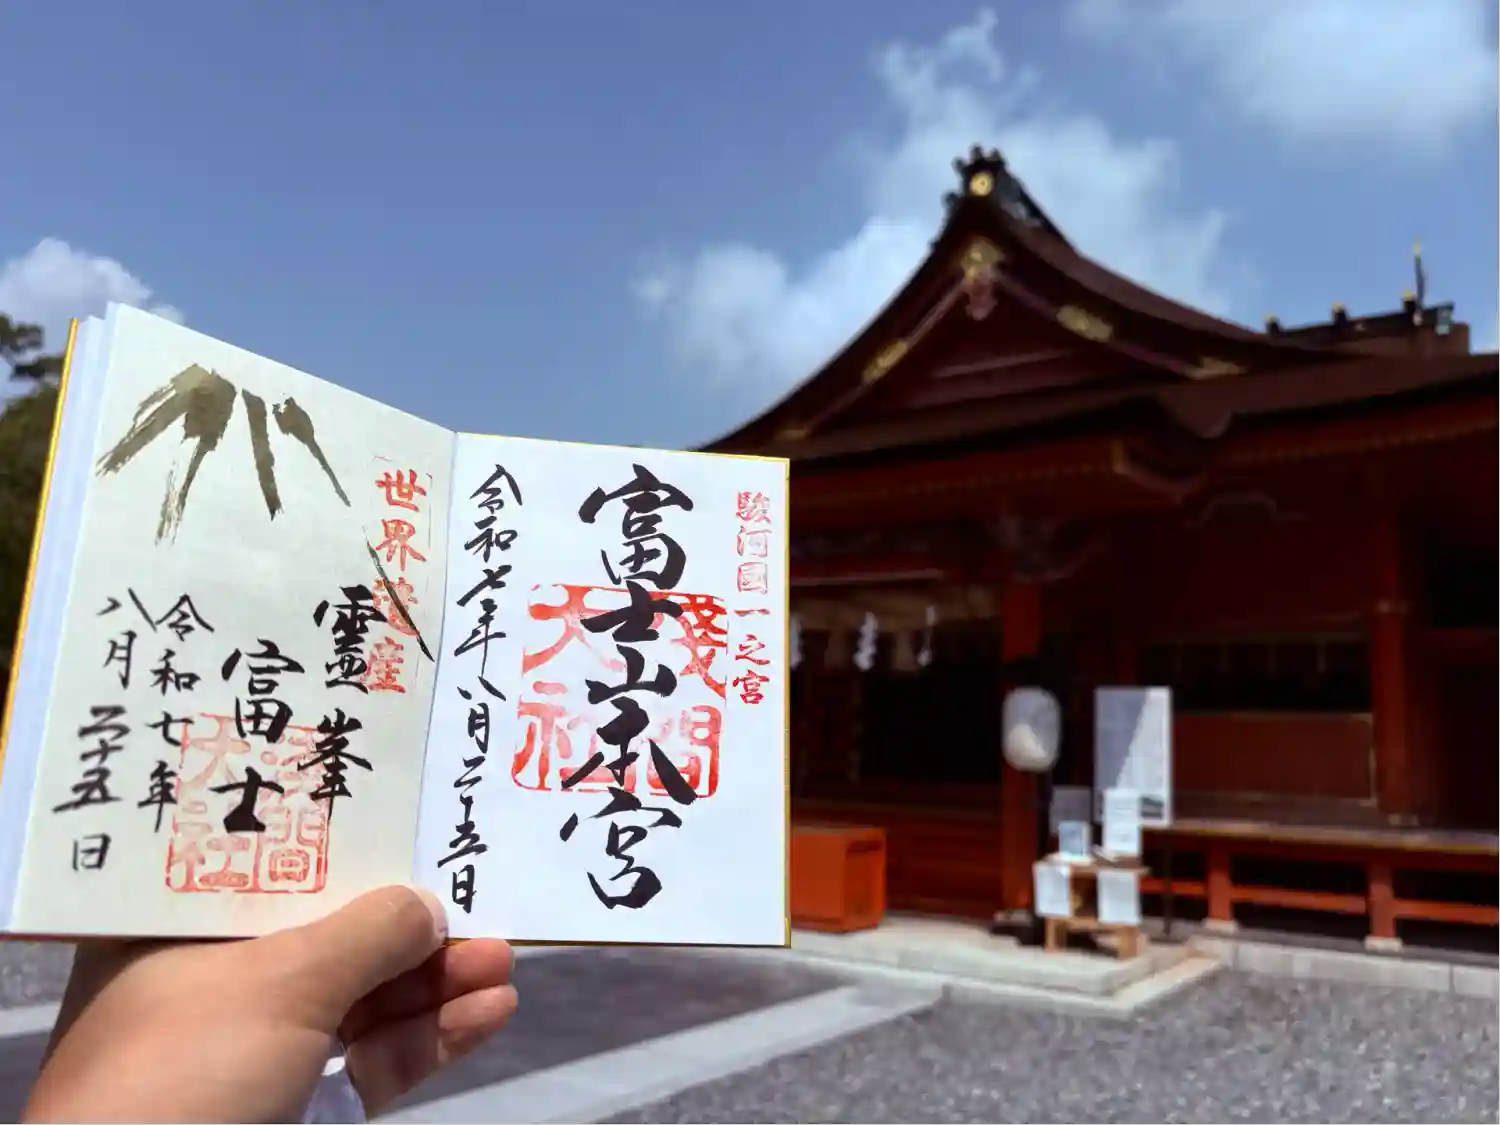 駿河國一之宮
富士山本宮
淺間
大社
令和七年八月二十五日
世界遺産
霊峯
富士
淺間
大社
令和七年
八月二十五日